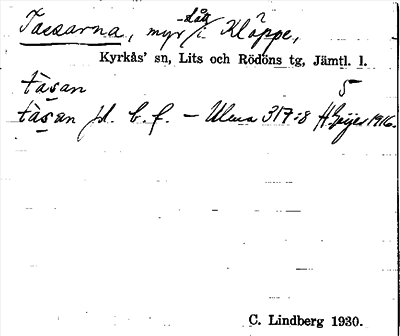 Tassarna, myr -slått i Kläppe,
Kyrkås' sn, Lits och Rödöns tg, Jämtl. l.
tàsan 5
tàsan pl. b. f. — Ulma 317:8 H Geijer 1916.
C. Lindberg 1930.